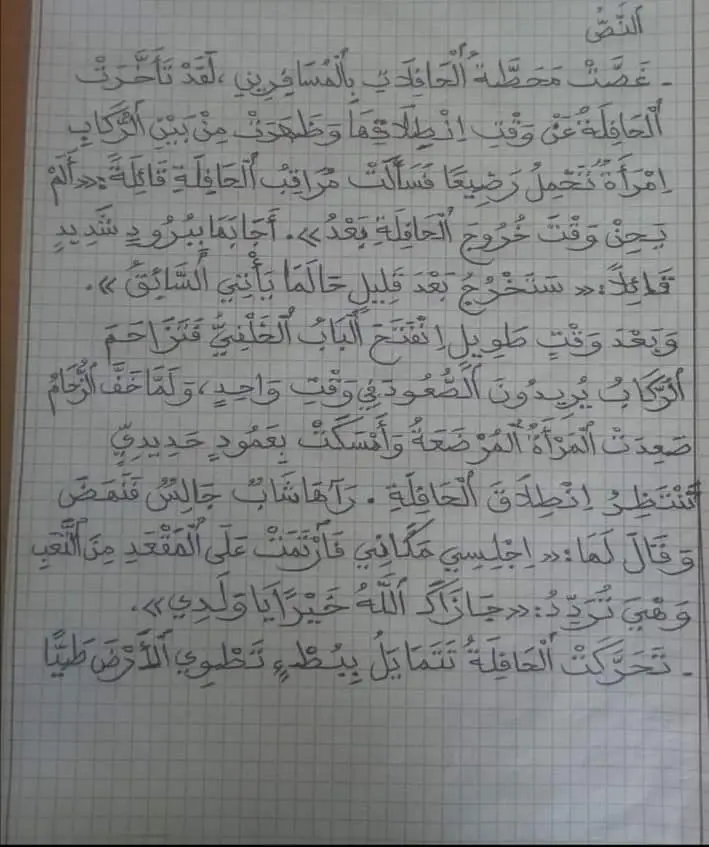 النَّصُّ
- غَصَّتْ مَحَطَّةُ الْحَافِلَاتِ بِالْمُسَافِرِينَ، لَقَدْ تَأَخَّرَتْ
الْحَافِلَةُ عَنْ وَقْتِ اِنْطِلَاقِهَا وَظَهَرَتْ مِنْ بَيْنِ الرُّكَّابِ
اِمْرَأَةٌ تَحْمِلُ رَضِيعًا فَسَأَلَتْ مُرَاقِبَ الْحَافِلَةِ قَائِلَةً: «أَلَمْ
يَحِنْ وَقْتُ خُرُوجِ الْحَافِلَةِ بَعْدُ». أَجَابَهَا بِبُرُودٍ شَدِيدٍ
قَائِلًا: «سَتَخْرُجُ بَعْدَ قَلِيلٍ حَالَمَا يَأْتِي السَّائِقُ».
وَبَعْدَ وَقْتٍ طَوِيلٍ اِنْفَتَحَ الْبَابُ الْخَلْفِيُّ فَتَزَاحَمَ
الرُّكَّابُ يُرِيدُونَ الصُّعُودَ فِي وَقْتٍ وَاحِدٍ، وَلَمَّا خَفَّ الزِّحَامُ
صَعِدَتْ الْمَرْأَةُ الْمُرْضِعَةُ وَأَمْسَكَتْ بِعَمُودٍ حَدِيدِيٍّ
تَنْتَظِرُ اِنْطِلَاقَ الْحَافِلَةِ. رَآهَا شَابٌّ جَالِسٌ فَنَهَضَ
وَقَالَ لَهَا: «اِجْلِسِي مَكَانِي فَارْتَمَتْ عَلَى الْمَقْعَدِ مِنَ التَّعَبِ
وَهْيَ تُرَدِّدُ: «جَازَاكَ اللَّهُ خَيْرًا يَا وَلَدِي».
- تَحَرَّكَتْ الْحَافِلَةُ تَتَمَايَلُ بِبُطْءٍ تَطْوِي الْأَرْضَ طَيًّا